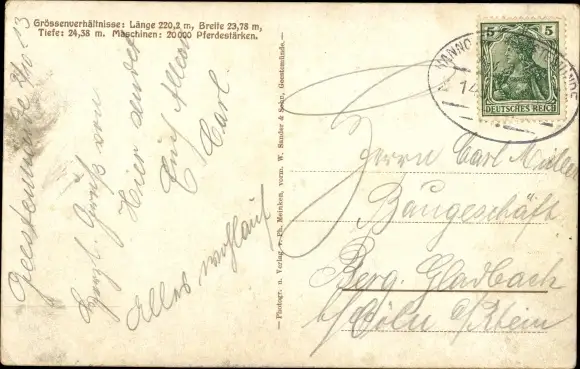 Grössenverhältnisse: Länge 220,2 m, Breite 23,78 m,
Tiefe: 24,38 m. Maschinen: 20000 Pferdestärken.
Geestemünde
13
Herzl. Gruß von
Hier sendet
Euch Allen
Carl.
Alles wohlauf
Photogr. u. Verlag v. Ph. Meinken, vorm. W. Sander & Sohn, Geestemünde.
5 5
DEUTSCHES REICH
HANNO
14
Herrn Carl Müller
Baugeschäft
Berg. Gladbach
b/Cöln a/Rhein